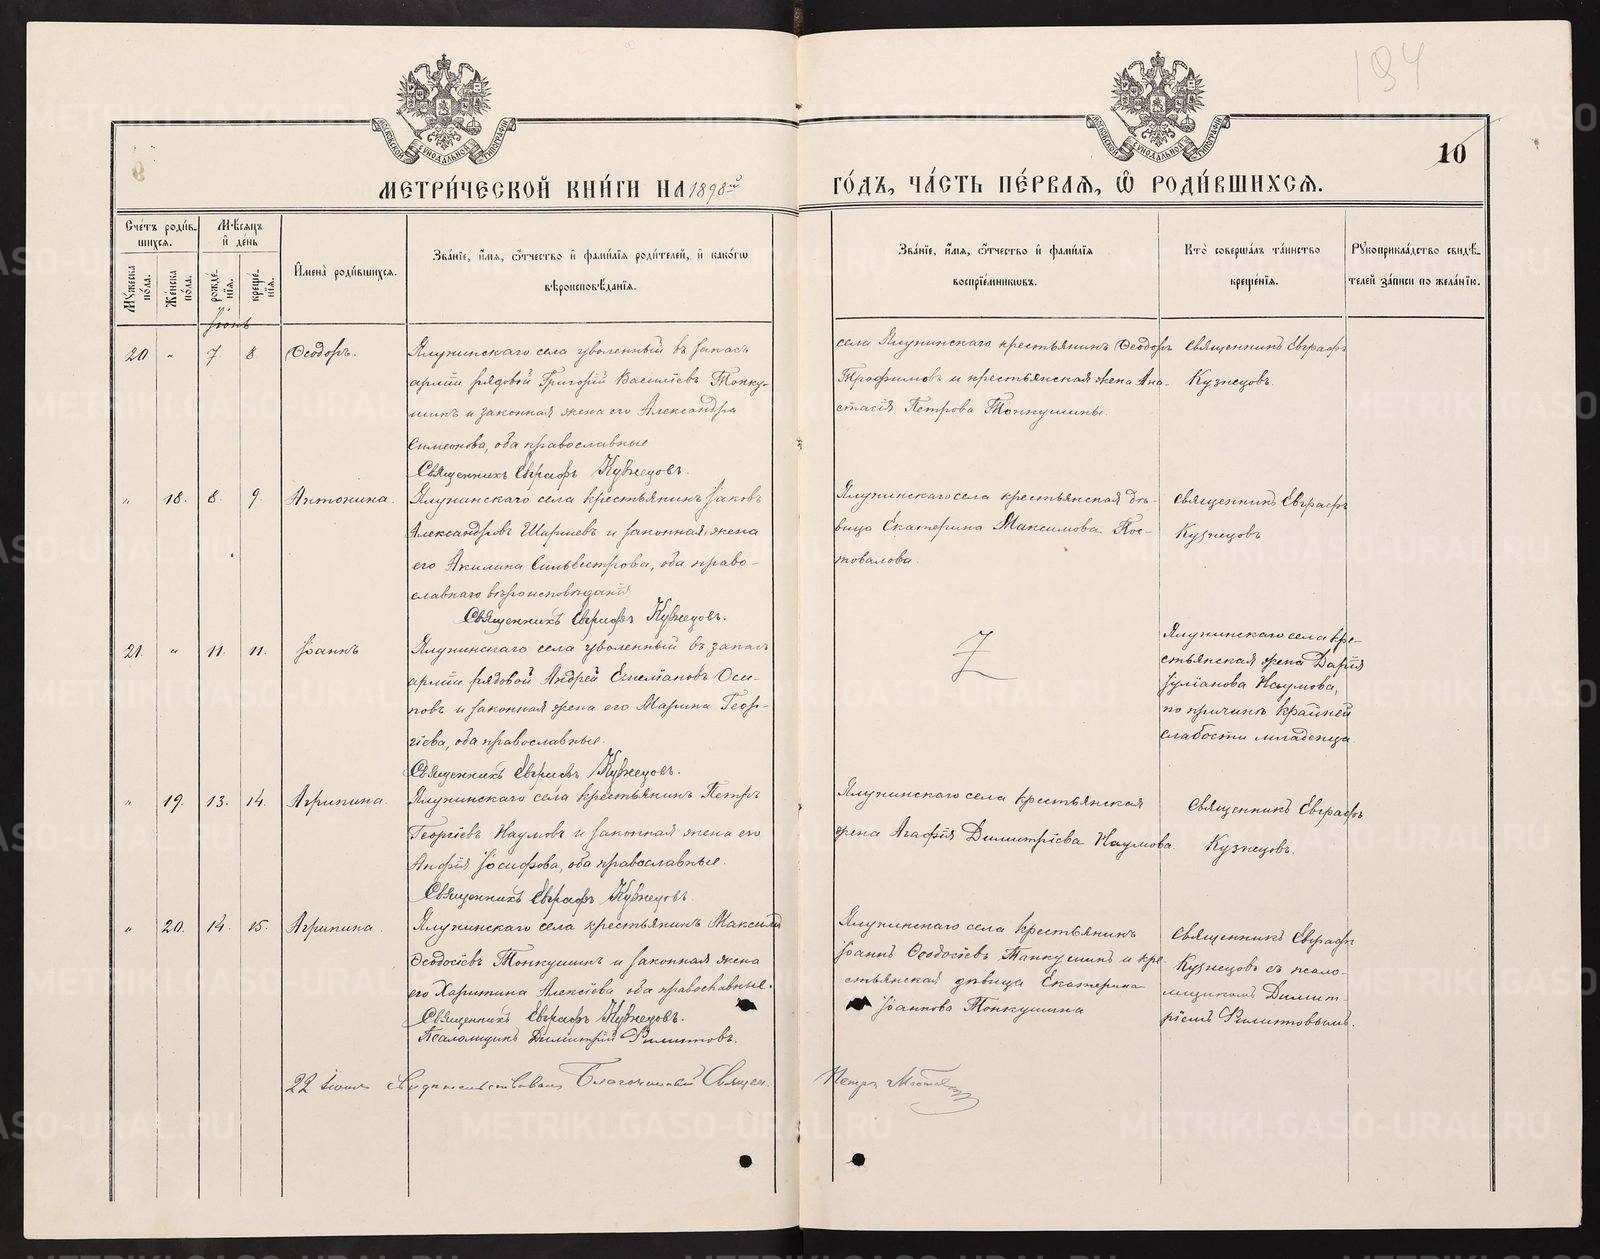 194
10
МОСКОВСКОЙ СѴНОДАЛЬНОЙ ТИПОГРАФІИ
МОСКОВСКОЙ СѴНОДАЛЬНОЙ ТИПОГРАФІИ
МЕТРИ́ЧЕСКОЙ КНИ́ГИ НА 1898й ГО́ДЪ, ЧА́СТЬ ПЕ́РВАЯ, Ѡ҆ РОДИ́ВШИХСѦ.
Сче́тъ роди́в-
шихсѧ.
Мꙋ́жеска по́ла.
Же́нска по́ла.
Мѣ́сѧцъ
и҆ де́нь
рожде́-
нїѧ.
креще́-
нїѧ.
И҆мена̀ роди́вшихсѧ.
Зва́нїе, и҆́мѧ, ѻ҆́тчество и҆ фами́лїѧ роди́телей, и҆ како́гѡ
вѣроисповѣ́данїѧ.
Зва́нїе, и҆́мѧ, ѻ҆́тчество и҆ фами́лїѧ
воспрїе́мникѡвъ.
Кто̀ соверша́лъ та́инство
креще́нїѧ.
Рꙋкоприкла́дство свидѣ́-
телей за́писи по жела́нїю.
Іюнь
20 „ 7 8 Ѳеодоръ.
Ялунинскаго села уволенный въ запасъ
арміи рядовой Григорій Василіевъ Топку-
шинъ и законная жена его Александра
Симеонова, оба православные
Священникъ Евграфъ Кузнецовъ.
села Ялунинскаго крестьянинъ Ѳеодоръ
Трофимовъ и крестьянская жена Ана-
стасія Петрова Топкушины.
Священникъ Евграфъ
Кузнецовъ.
„ 18. 8. 9. Антонина.
Ялунинскаго села крестьянинъ Іаковъ
Александровъ Ширшевъ и законная жена
его Акилина Сильвестрова, оба право-
славнаго вѣроисповѣданія
Священникъ Евграфъ Кузнецовъ.
Ялунинскаго села крестьянская дѣ-
вица Екатерина Максимова Пос-
товалова.
Священникъ Евграфъ
Кузнецовъ
21. „ 11. 11. Іоаннъ
Ялунинскаго села уволенный въ запасъ
арміи рядовой Андрей Емеліановъ Оси-
повъ и законная жена его Марина Геор-
гіева, оба православные.
Священникъ Евграфъ Кузнецовъ.
Ялунинскаго села кре-
стьянская жена Дарія
Іуліанова Наумова,
по причинѣ крайней
слабости младенца
„ 19. 13. 14. Агрипина.
Ялунинскаго села крестьянинъ Петръ
Георгіевъ Наумовъ и законная жена его
Анфія Іосифова, оба православные.
Священникъ Евграфъ Кузнецовъ.
Ялунинскаго села крестьянская
жена Агафія Димитріева Наумова.
Священникъ Евграфъ
Кузнецовъ.
„ 20. 14. 15. Агрипина.
Ялунинскаго села крестьянинъ Максимъ
Ѳеодосіевъ Топкушинъ и законная жена
его Харитина Алексіева оба православные.
Священникъ Евграфъ Кузнецовъ.
Псаломщикъ Димитрій Филитовъ.
Ялунинскаго села крестьянинъ
Іоаннъ Ѳеодосіевъ Топкушинъ и кре-
стьянская дѣвица Екатерина
Іоаннова Топкушина
Священникъ Евграфъ
Кузнецовъ съ псало-
мщикомъ Димит-
ріемъ Филитовымъ.
22 Іюня Свидѣтельствовалъ Благочинный Священ. Петръ